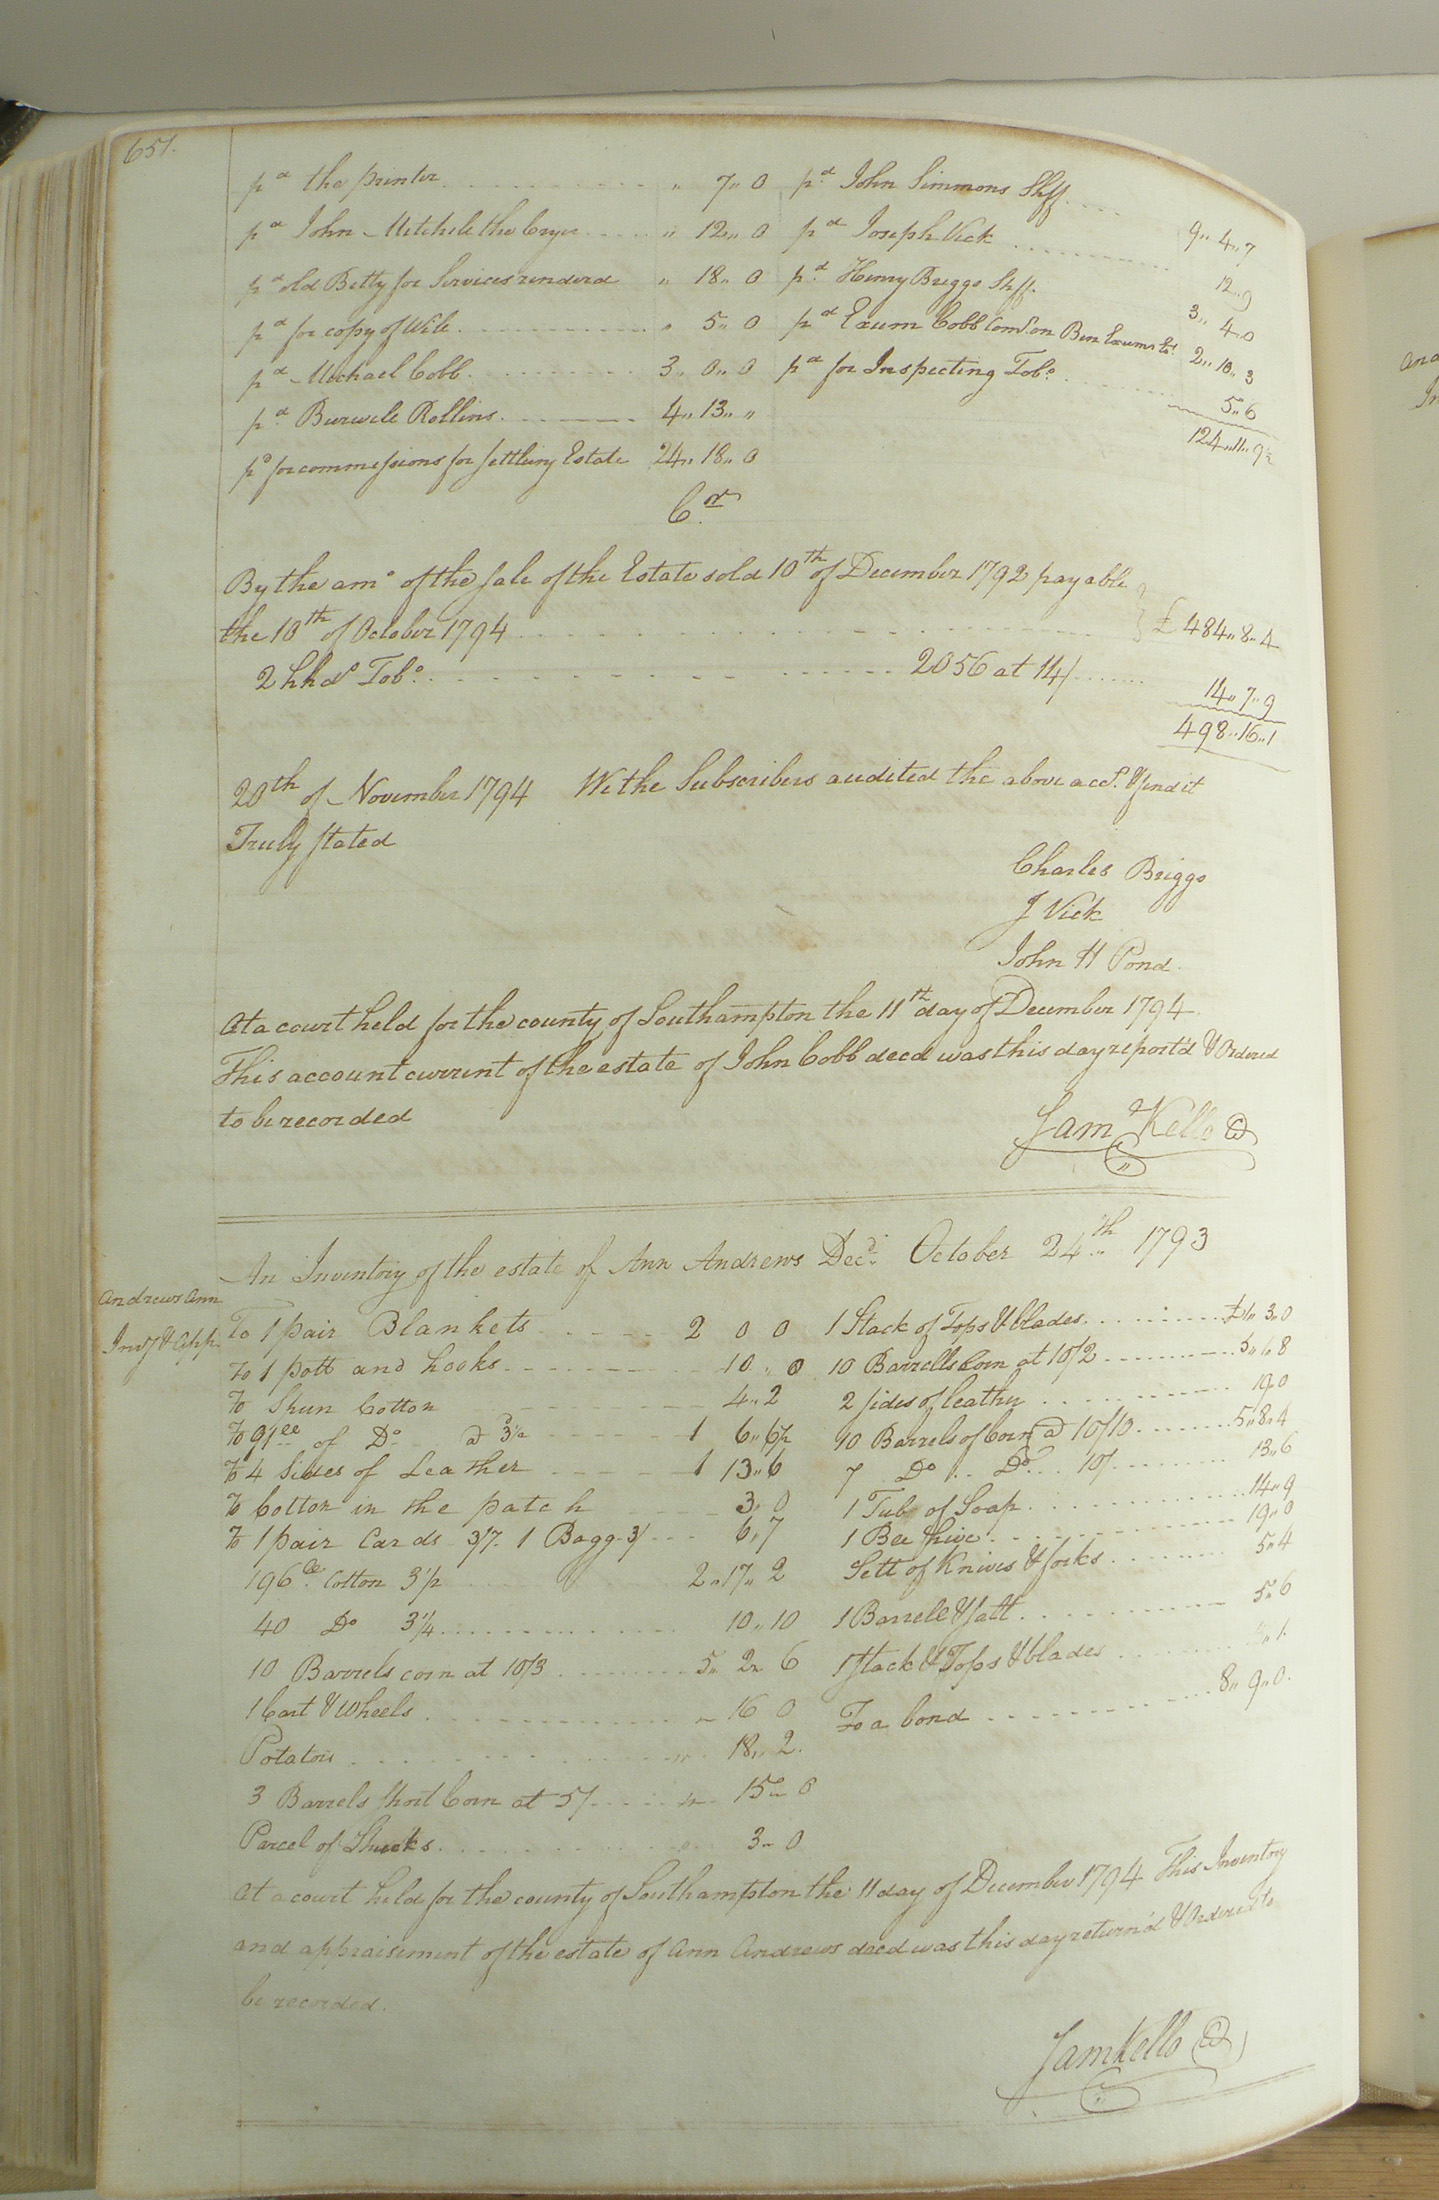 651.
pd the printer " 7 " 0
pd John Mitchell the Cryer " 12 " 0
pd old Betty for Services renderd " 18 " 0
pd for copy of Will " 5 " 0
pd Michael Cobb 3 " 0 " 0
pd Burwell Rollins 4 " 13 " "
pd for commissions for settling Estate 24 " 18 " 0
pd John Simmons Shff 9 " 4 " 7
pd Joseph Vick 12 " 9
pd Henry Briggs Shff. 3 " 4 " 0
pd Exum Cobb Comd. on Ben Exums Est. 2 " 10 " 3
pd for Inspecting Tobo. 5 " 6
124 " 11 " 9½
Cr
By the amo of the sale of the Estate sold 10th of December 1792 payable
the 10th of October 1794 £ 484 " 8 " 4
2 hhds Tobo. 2056 at 14/ 14 " 7 " 9
498 " 16 " 1
20th of November 1794 We the Subscribers audited the above acct. & find it
Truly stated
Charles Briggs
J Vick
John H Pond
At a court held for the county of Southampton the 11th day of December 1794
This account current of the estate of John Cobb decd was this day report'd & Ordered
to be recorded
Sam Kello
An Inventory of the estate of Ann Andrews Decd. October 24th 1793
Andrews Ann
Invy & App.
To 1 pair Blankets 2 0 0
To 1 pott and hooks 10 " 0
To Spun Cotton 4 " 2
To 91 of Do @ 3½ 1 6 " 6½
To 4 Sides of Leather 1 13 " 6
To Cotton in the patch 3 " 0
To 1 pair Cards 3/7 1 Bagg 3/ 6 " 7
196 Cotton 3½ 2 " 17 " 2
40 Do 3¼ 10 " 10
10 Barrels corn at 10/3 5 " 2 " 6
1 Cart & Wheels 16 0
Potatoes 18 " 2
3 Barrels short Corn at 5/ 15 " 0
Parcel of Shucks 3 " 0
1 Stack of Tops & blades £1 " 3 " 0
10 Barrells Corn at 10/2 5 " 1 " 8
2 sides of leather 19 " 0
10 Barrels of Corn @ 10/10 5 " 8 " 4
7 Do Do 10/ 13 " 6
1 Tub of Soap 14 " 9
1 Bee hive 19 " 0
Sett of Knives & forks 5 " 4
1 Barrell & salt 5 " 6
1 stack & Tops & blades
To a bond 8 " 9 " 0
At a court held for the county of Southampton the 11 day of December 1794 This Inventory
and appraisement of the estate of Ann Andrews decd was this day return'd & Ordered to
be recorded.
Sam Kello